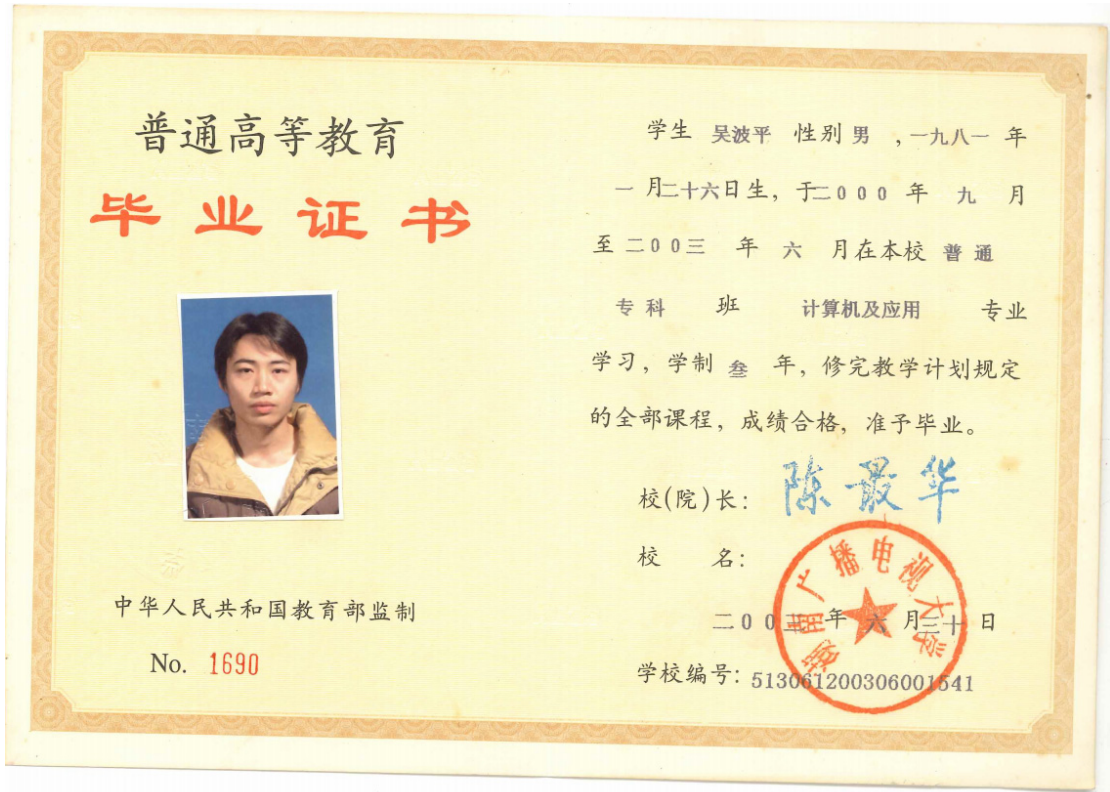 普通高等教育
毕业证书
中华人民共和国教育部监制
No. 1690
学生 吴波平 性别 男 ,一九八一 年
一 月二十六日生, 于二000 年 九 月
至 二00三 年 六 月在本校 普通
专科 班 计算机及应用 专业
学习, 学制 叁 年, 修完教学计划规定
的全部课程, 成绩合格, 准予毕业。
校(院)长: 陈最华
校 名:
湖南广播电视大学
二00三 年 六 月三十 日
学校编号: 513061200306001541